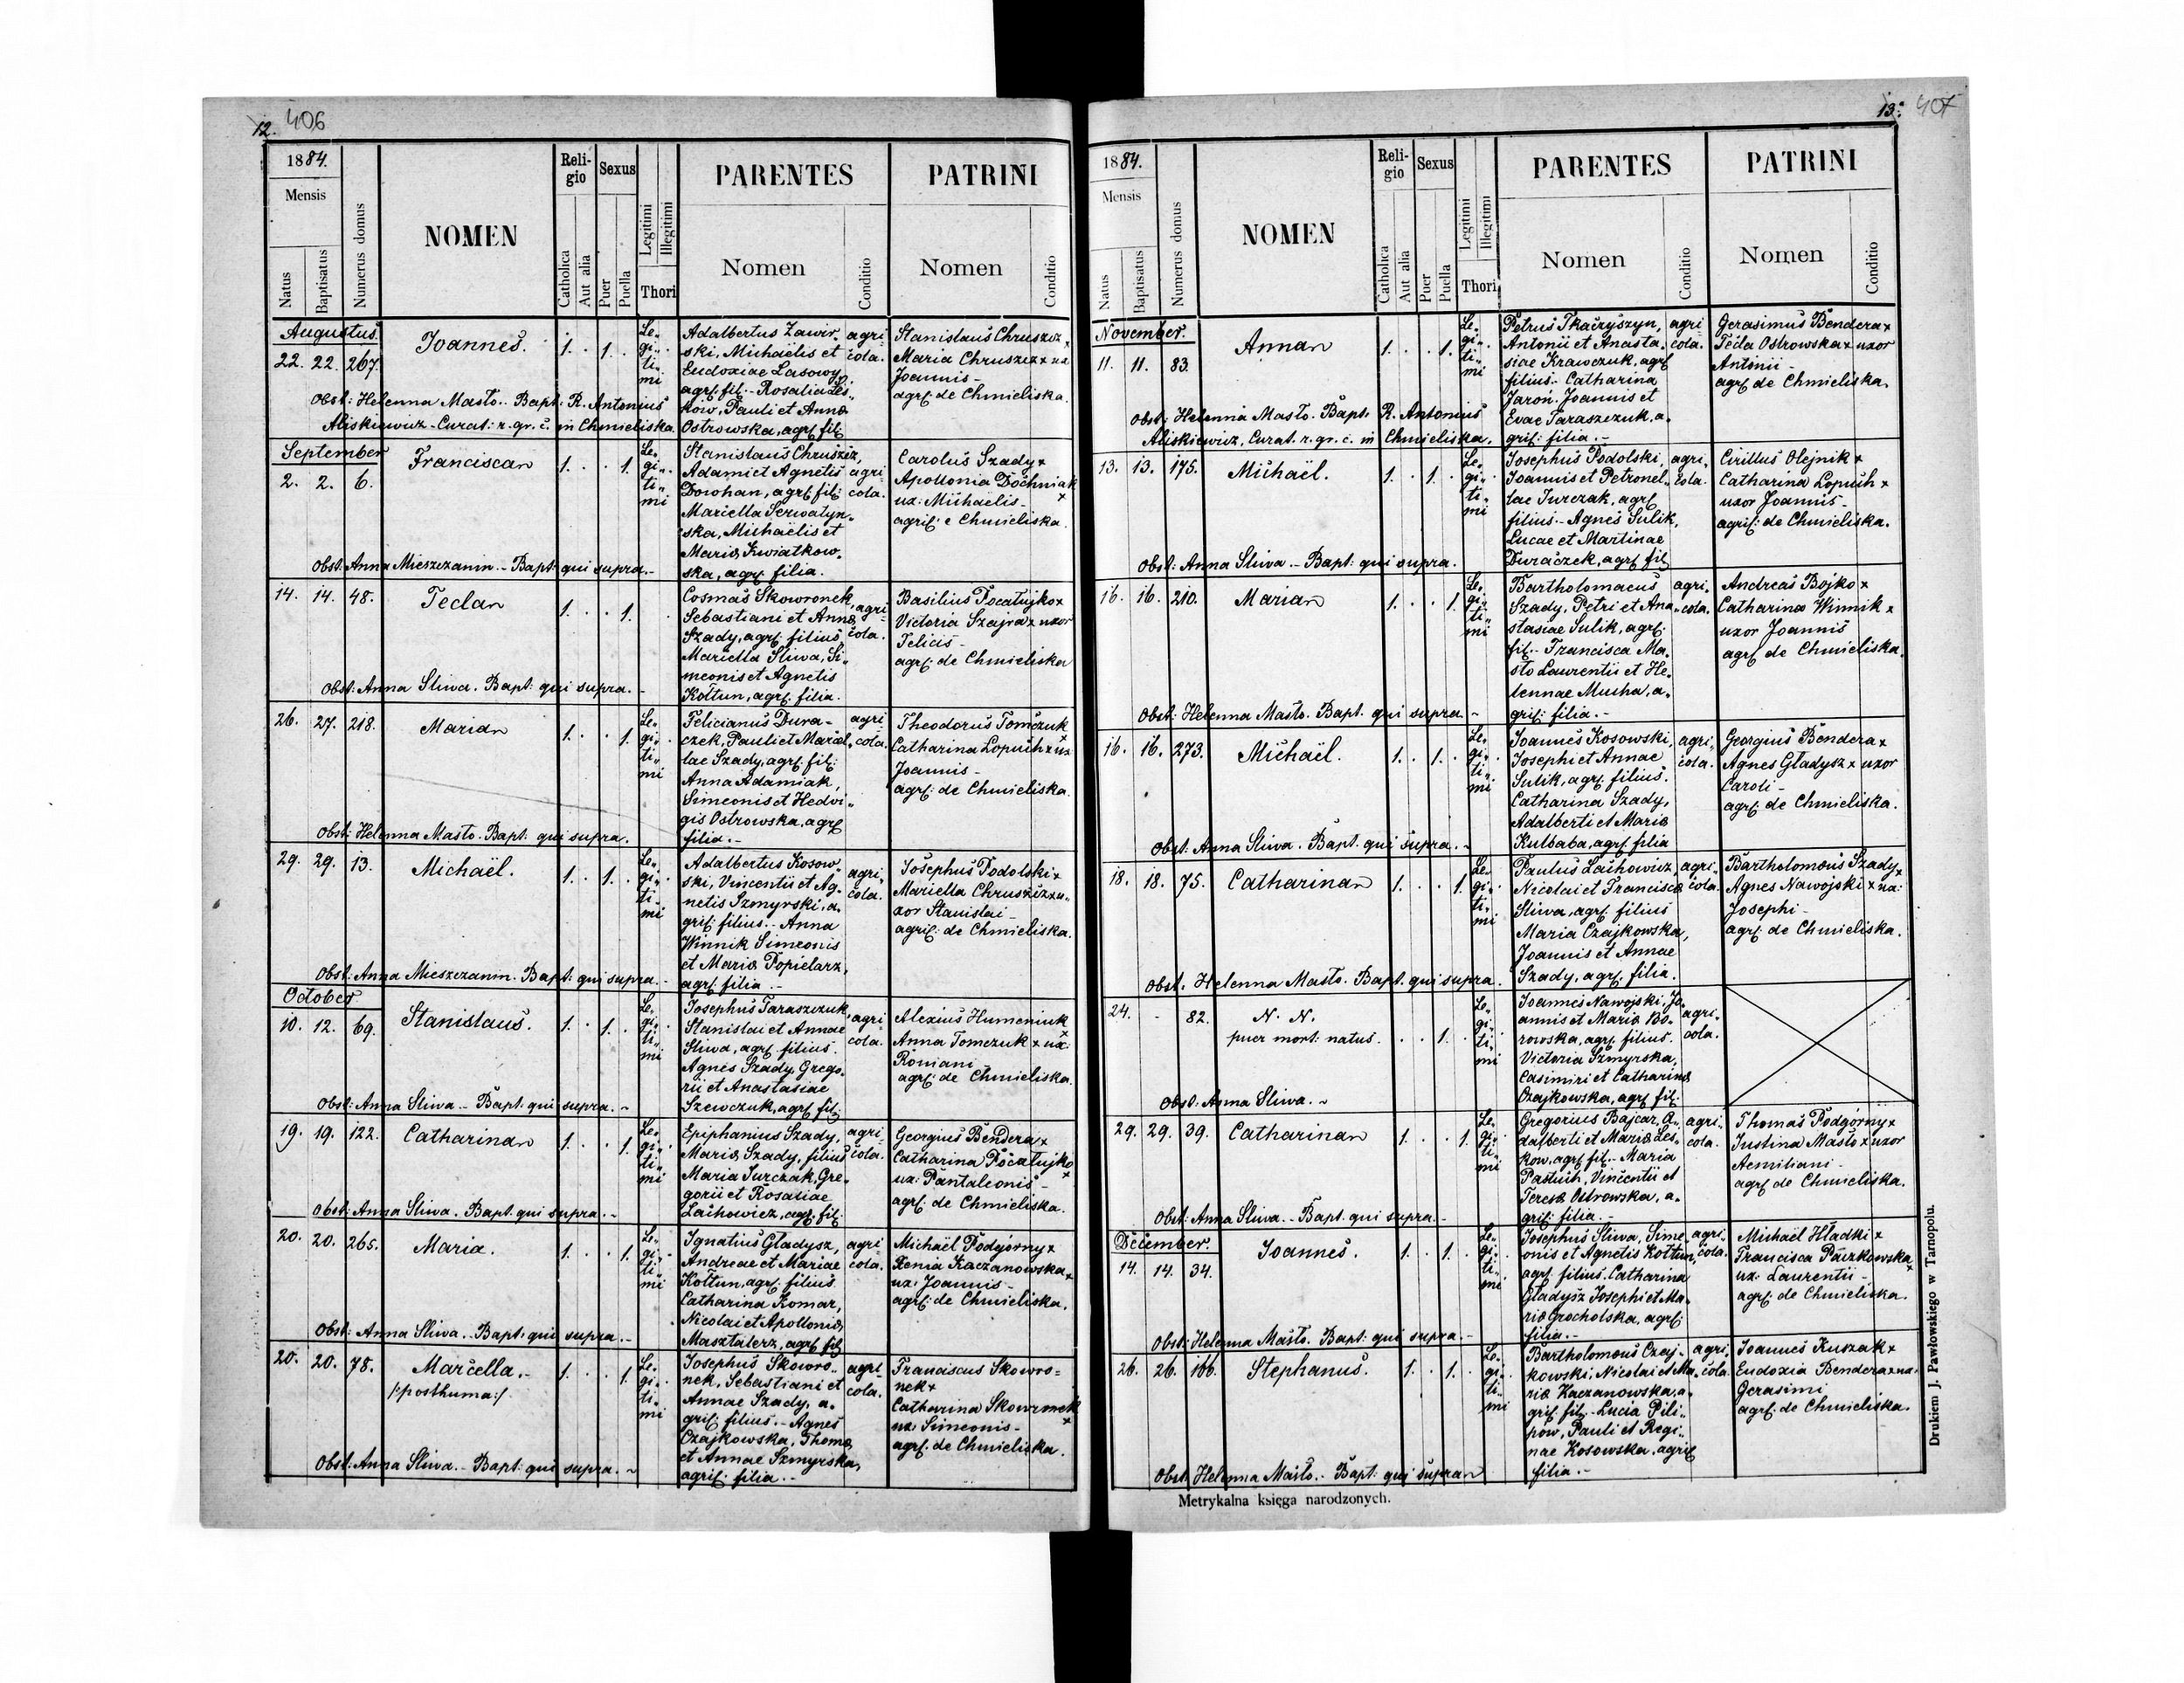 12. 406
1884.
Mensis
Natus
Baptisatus
Numerus domus
NOMEN
Religio
Catholica
Aut alia
Sexus
Puer
Puella
Legitimi
Illegitimi
Thori
PARENTES
Nomen
Conditio
PATRINI
Nomen
Conditio
Augustus
22. 22. 267.
Joannes.
1. . 1. .
Le„
gi„
ti„
mi
Adalbertus Zawir„
ski, Michaëlis et
Eudoxiae Lasowy,
agrf. fil.- Rosalia Les„
ków, Pauli et Annæ
Ostrowska, agrf. fil:
agri
cola.
Stanislaus Chruszcz x
Maria Chruszcz x ux
Joannis-
agrf. de Chmieliska.
Obst: Helenna Masło.- Bapt: R. Antonius
Aliskiewicz - Curat: r. gr. c. in Chmieliska.
September
2. 2. 6.
Francisca
1. . . 1.
Le„
gi„
ti„
mi
Stanislaus Chruszcz,
Adami et Agnetis
Dowhan, agrf. fil:
Mariella Serwatyn„
ska, Michaëlis et
Mariæ Kwiatkow„
ska, agrf. filia.
agri
cola.
Carolus Szady x
Apollonia Dochniak x
ux: Michaëlis-
agrif: e Chmieliska.
Obst: Anna Mieszczanin.- Bapt: qui supra.-
14. 14. 48.
Tecla
1. . . 1.
Cosmas Skowronek,
Sebastiani et Annæ
Szady, agrf. filius
Mariella Sliwa, Si„
meonis et Agnetis
Kołtun, agrf. filia.
agri
cola.
Basilius Pocałujko x
Victoria Szajna x uxor
Felicis-
agrf: de Chmieliska
Obst: Anna Sliwa. Bapt: qui supra.-
26. 27. 218.
Maria
1. . . 1.
Le„
gi„
ti„
mi
Felicianus Dura-
czek, Pauli et Mariel„
lae Szady, agrf. fil:
Anna Adamiak,
Simeonis et Hedvi„
gis Ostrowska, agrf
filia.-
agri
cola.
Theodorus Tomczuk x
Catharina Lopuch x ux
Joannis-
agrf: de Chmieliska.
Obst: Helenna Masło. Bapt: qui supra.
29. 29. 13.
Michaël.
1. . 1. .
Le„
gi„
ti„
mi
Adalbertus Kosow
ski, Vincentii et Ag„
netis Szmyrski, a„
grif: filius.- Anna
Winnik Simeonis
et Mariæ Popielarz,
agrf: filia.-
agri
cola.
Josephus Podolski x
Mariella Chruszcz x u„
xor Stanislai-
agrif: de Chmieliska.
Obst: Anna Mieszczanin. Bapt: qui supra.-
October
10. 12. 69.
Stanislaus.
1. . 1. .
Le„
gi„
ti„
mi
Josephus Taraszczuk,
Stanislai et Annae
Sliwa, agrf. filius.
Agnes Szady, Grego„
rii et Anastasiae
Szewczuk, agrf. fil:
agri
cola.
Alexius Humeniuk x
Anna Tomczuk x ux:
Romani-
agrf: de Chmieliska.
Obst: Anna Sliwa.- Bapt: qui supra.-
19. 19. 122.
Catharina
1. . . 1.
Le„
gi„
ti„
mi
Epiphanius Szady,
Mariæ Szady, filius
Maria Jurczak, Gre„
gorii et Rosaliae
Lachowicz, agrf. fil:
agri
cola.
Georgius Bendera x
Catharina Pocałujko x
ux: Pantaleonis-
agrf. de Chmieliska.
Obst: Anna Sliwa. Bapt. qui supra.-
20. 20. 265.
Maria.
1. . . 1.
Le„
gi„
ti„
mi
Ignatius Gladysz,
Andreae et Mariae
Kołtun, agrf. filius.
Catharina Komar,
Nicolai et Apolloniæ
Masztalerz, agrf. fil
agri
cola.
Michaël Podgórny x
Xenia Kaczanowska x
ux: Joannis-
agrf: de Chmieliska.
Obst: Anna Sliwa.- Bapt: qui supra.-
20. 20. 78.
Marcella.-
/:posthuma:/.
1. . . 1.
Le„
gi„
ti„
mi
Josephus Skowro„
nek, Sebastiani et
Annae Szady, a„
grif: filius.- Agnes
Czajkowska, Thomæ
et Annae Szmyrska,
agrif: filia.-
agri
cola.
Franciscus Skowro=
nek x
Catharina Skowronek x
ux Simeonis-
agrf. de Chmieliska.
Obst: Anna Sliwa.- Bapt: qui supra.-
13. 407
1884.
Mensis
Natus
Baptisatus
Numerus domus
NOMEN
Religio
Catholica
Aut alia
Sexus
Puer
Puella
Legitimi
Illegitimi
Thori
PARENTES
Nomen
Conditio
PATRINI
Nomen
Conditio
November.
11. 11. 83.
Anna
1. . . 1.
Le„
gi„
ti„
mi
Petrus Tkaczyszyn,
Antonii et Anasta„
siae Krawczuk, agrf
filius.- Catharina
Jaroń, Joannis et
Evae Taraszczuk, a„
grif: filia.-
agri
cola.
Gerasimus Bendera x
Tecla Ostrowska x uxor
Antonii-
agrf. de Chmieliska.
Obst: Helenna Masło. Bapt. R. Antonius
Aliskiewicz, Curat. r. gr. c. in Chmieliska.
13. 13. 175.
Michaël.
1. . 1. .
Le„
gi„
ti„
mi
Josephus Podolski,
Joannis et Petronel„
lae Jurczak, agrf
filius.- Agnes Sulik,
Lucae et Martinae
Duraczek, agrf. fil
agri„
cola.
Cirillus Olejnik x
Catharina Lopuch x
uxor Joannis-
agrif: de Chmieliska.
Obst: Anna Sliwa.- Bapt: qui supra.
16. 16. 210.
Maria
1. . . 1.
Le„
gi„
ti„
mi
Bartholomaeus
Szady, Petri et Ana„
stasiae Sulik, agrf:
fil.- Francisca Ma„
sło Laurentii et He„
lennae Mucha, a„
grif: filia.-
agri„
cola.
Andreas Bojko x
Catharina Winnik x
uxor Joannis
agrf de Chmieliska.
Obst: Helenna Masło. Bapt. qui supra.-
16. 16. 273.
Michaël.
1. . 1. .
Le„
gi„
ti„
mi
Joannes Kosowski,
Josephi et Annae
Sulik, agrf. filius.
Catharina Szady,
Adalberti et Mariæ
Kulbaba, agrf. filia
agri„
cola.
Georgius Bendera x
Agnes Gladysz x uxor
Caroli-
agrf: de Chmieliska.
Obst: Anna Sliwa. Bapt: qui supra.-
18. 18. 75.
Catharina
1. . . 1.
Le„
gi„
ti„
mi
Paulus Lachowicz,
Nicolai et Franciscæ
Sliwa, agrf. filius
Maria Czajkowska,
Joannis et Annae
Szady, agrf. filia.
agri„
cola.
Bartholomeus Szady x
Agnes Nawojski x ux:
Josephi-
agrf: de Chmieliska.
Obst. Helenna Masło. Bapt. qui supra.
24. - 82.
N. N.
puer mort: natus.
. . 1. .
Le„
gi„
ti„
mi
Joannes Nawojski, Jo„
annis et Mariæ Bo„
rowska, agrf. filius.
Victoria Szmyrska,
Casimiri et Catharinæ
Czajkowska, agrf. fil.
agri„
cola.
Obst: Anna Sliwa.-
29. 29. 39.
Catharina
1. . . 1.
Le„
gi„
ti„
mi
Gregorius Bajcar, A„
dalberti et Mariæ Les„
kow, agrf. fil.- Maria
Pastuch, Vincentii et
Teresæ Ostrowska, a„
grif: filia.-
agri„
cola.
Thomas Podgórny x
Justina Masło x uxor
Aemiliani-
agrf. de Chmieliska.
Obst: Anna Sliwa.- Bapt. qui supra.-
December.
14. 14. 34.
Joannes.
1. . 1. .
Le„
gi„
ti„
mi
Josephus Sliwa, Sime„
onis et Agnetis Kołtun,
agrf. filius. Catharina
Gladysz Josephi et Ma„
riæ Grocholska, agrf:
filia.-
agri„
cola.
Michaël Hładki x
Francisca Paczkowska x
ux: Laurentii-
agrf: de Chmieliska.
Obst: Helenna Masło. Bapt: qui supra.-
26. 26. 166.
Stephanus.
1. . 1. .
Le„
gi„
ti„
mi
Bartholomeus Czaj„
kowski, Nicolai et Ma„
riæ Kaczanowska, a„
grif. fil.- Lucia Pili„
pow, Pauli et Regi„
nae Kosowska, agrif
filia.-
agri„
cola.
Joannes Kuszak x
Eudoxia Bendera x ux.
Gerasimi
agrf: de Chmieliska.
Obst: Helenna Masło.- Bapt: qui supra
Metrykalna księga narodzonych.
Drukiem J. Pawłowskiego w Tarnopolu.